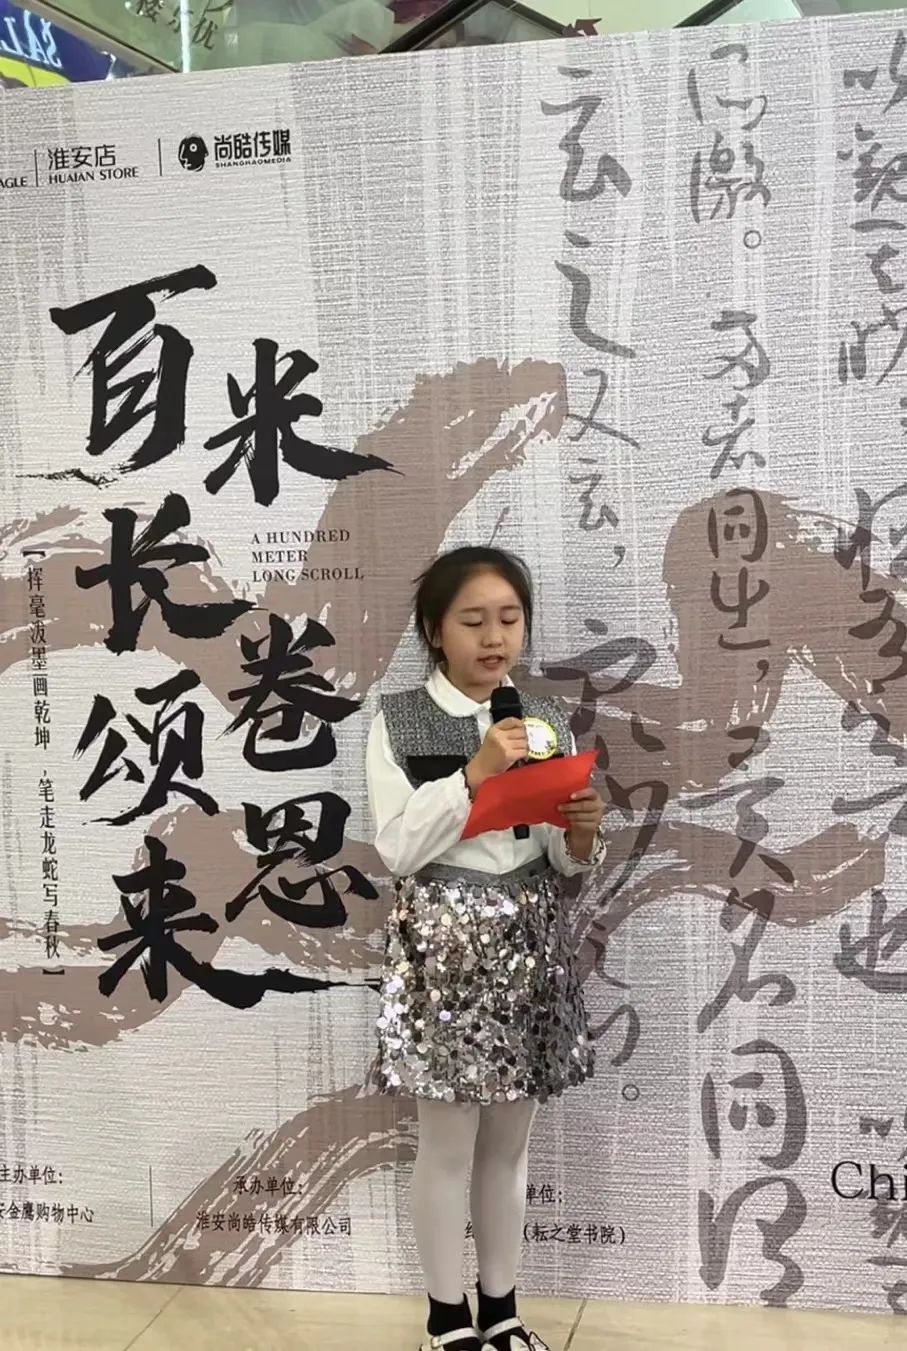 SAL
AGLE
淮安店
HUAIAN STORE
尚皓传媒
SHANGHAOMEDIA
百米
长卷
颂恩
来
A HUNDRED
METER
LONG SCROLL
【挥毫泼墨画乾坤,笔走龙蛇写春秋】
以观其
同微。
两者同出,
异名同谓
玄之又玄,
众妙之门。
主办单位:
安金鹰购物中心
承办单位:
淮安尚皓传媒有限公司
单位:
(耘之堂书院)
Chi